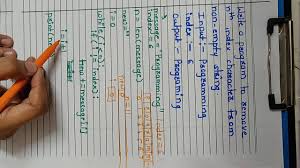 Write a program to remove
nth index character from
non-empty string
Input :- Programming
index :- 6
output :- Programing
message = "Programming"
index = 6
n = len(message)
new = ""
i = 0
while (i < n):
if (i != index):
new += message[i]
i = i + 1